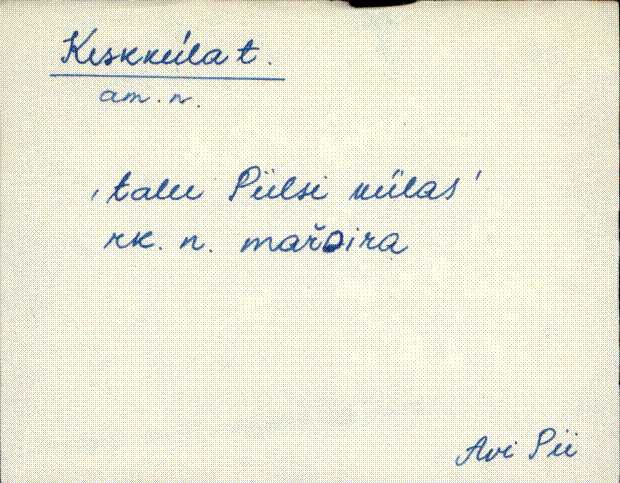 Keskküla t.
am. n.
'talu Piilsi külas'
rk. n. mařoira
Avi Pii